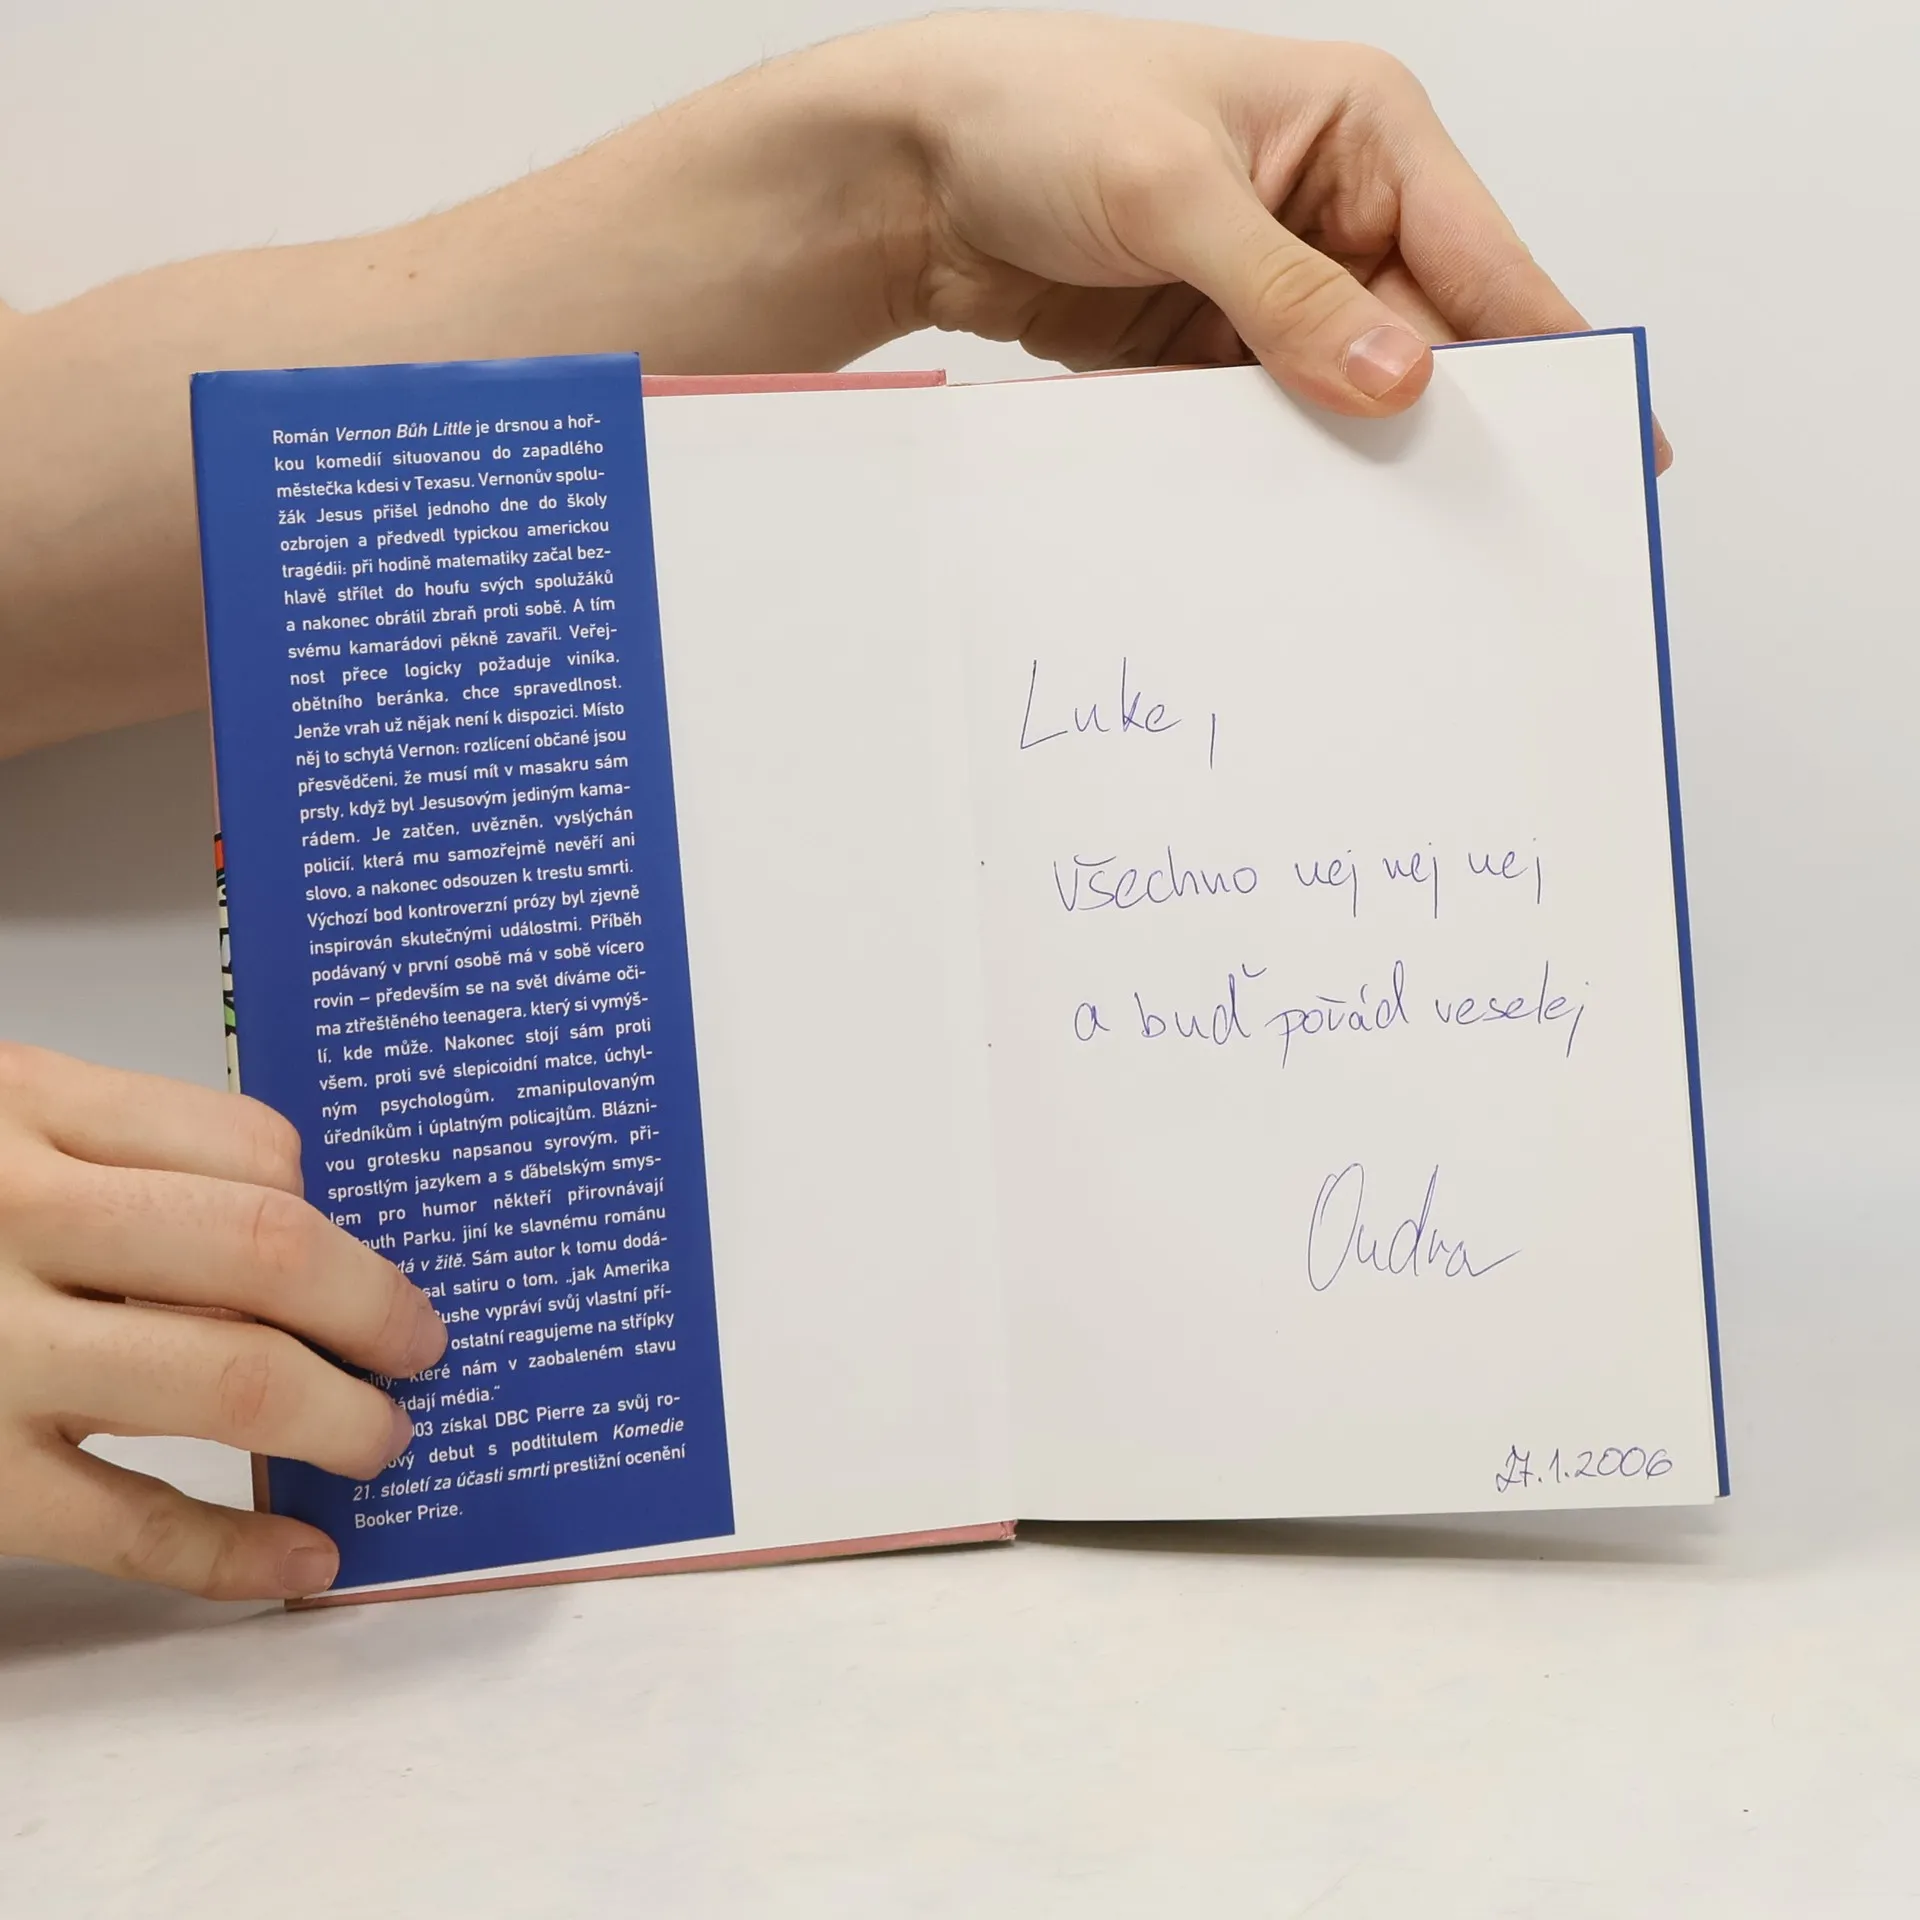 Román Vernon Bůh Little je drsnou a hoř-
kou komedií situovanou do zapadlého
městečka kdesi v Texasu. Vernonův spolu-
žák Jesus přišel jednoho dne do školy
ozbrojen a předvedl typickou americkou
tragédii: při hodině matematiky začal bez-
hlavě střílet do houfu svých spolužáků
a nakonec obrátil zbraň proti sobě. A tím
svému kamarádovi pěkně zavařil. Veřej-
nost přece logicky požaduje viníka,
obětního beránka, chce spravedlnost.
Jenže vrah už nějak není k dispozici. Místo
něj to schytá Vernon: rozlícení občané jsou
přesvědčeni, že musí mít v masakru sám
prsty, když byl Jesusovým jediným kama-
rádem. Je zatčen, uvězněn, vyslýchán
policií, která mu samozřejmě nevěří ani
slovo, a nakonec odsouzen k trestu smrti.
Výchozí bod kontroverzní prózy byl zjevně
inspirován skutečnými událostmi. Příběh
podávaný v první osobě má v sobě vícero
rovin – především se na svět díváme oči-
ma ztřeštěného teenagera, který si vymýš-
lí, kde může. Nakonec stojí sám proti
všem, proti své slepicoidní matce, úchyl-
ným psychologům, zmanipulovaným
úředníkům i úplatným policajtům. Blázni-
vou grotesku napsanou syrovým, při-
sprostlým jazykem a s ďábelským smys-
lem pro humor někteří přirovnávají
Parku, jiní ke slavnému románu
v žitě. Sám autor k tomu dodá-
satiru o tom, „jak Amerika
vypráví svůj vlastní pří-
ostatní reagujeme na střípky
které nám v zaobaleném stavu
média.“
získal DBC Pierre za svůj ro-
debut s podtitulem Komedie
21. století za účasti smrti prestižní ocenění
Booker Prize.
Luke,
všechno nej nej nej
a buď pořád veselej
Ondra
27.1.2006